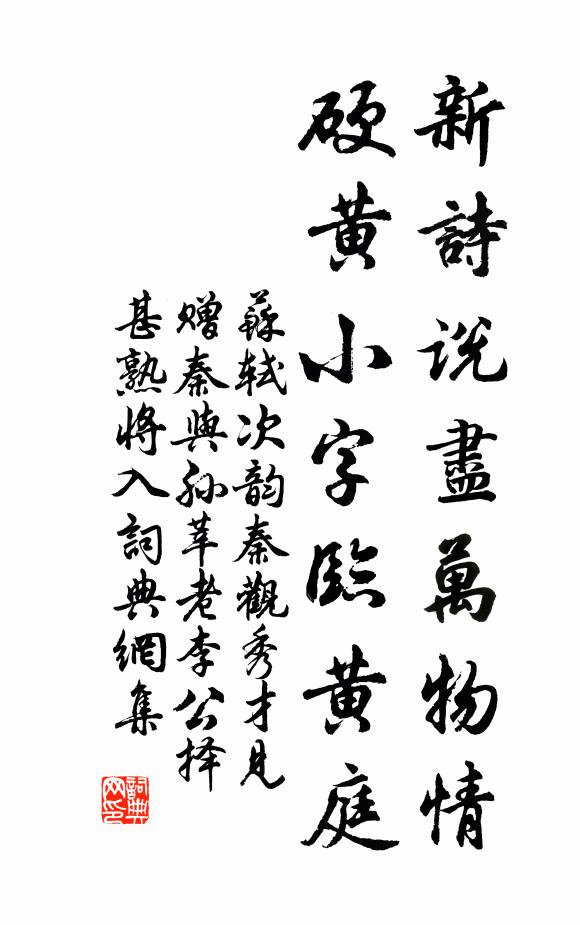 新詩説盡萬物情
硬黄小字臨黄庭
蘇軾次韵秦觀秀才見
赠秦與孫莘老李公择
甚熟將入詞典網集
詞典网印